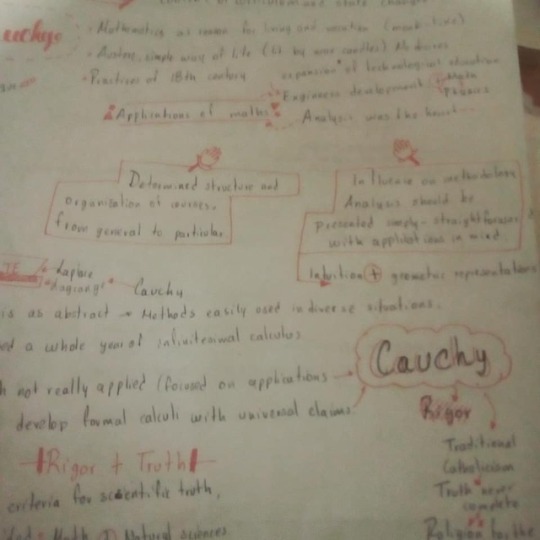 Cauchy
- Mathematics as reason for living and vocation
simple way of life
- Practices of 18th century
expansion of technological education
Engineers development + Math
Physics
Applications of maths
Analysis was the
Determined structure and
organisation of courses.
from general to particular
Influence on methodology
Analysis should be
presented simply - straightforward
with applications in mind.
Intuition + geometric representations
Laplace
Lagrange
Cauchy
is as abstract → Methods easily used in diverse situations.
a whole year of infinitesimal calculus
not really applied (focused on applications
develop formal calculi with universal claims
Cauchy
Rigor
Traditional
Catholicism
Truth never
complete
Religion for the
Rigor + Truth
criteria for scientific truth,
Math Natural sciences